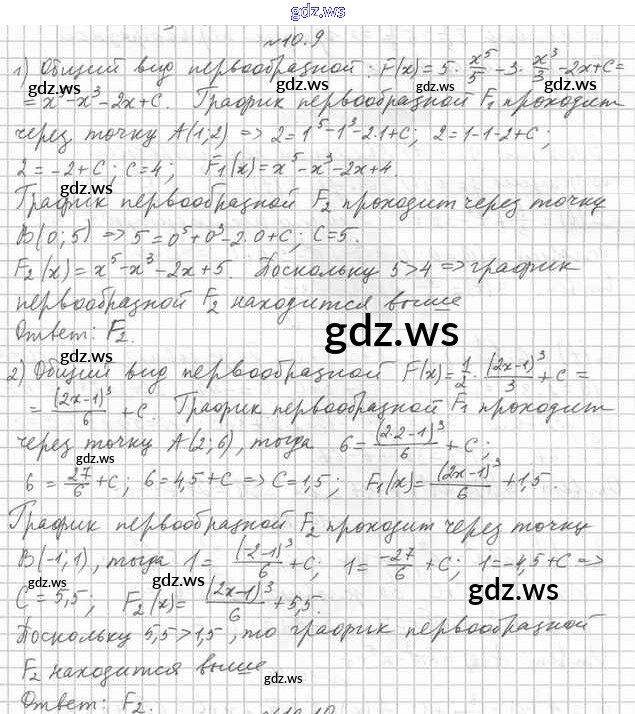 gdz.ws
№10.9
1) Общий вид первообразной: F(x) = 5·x⁵/5 - 3·x³/3 - 2x + C =
= x⁵ - x³ - 2x + C. График первообразной F₁ проходит
через точку A(1;2) => 2 = 1⁵ - 1³ - 2·1 + C; 2 = 1 - 1 - 2 + C;
2 = -2 + C; C = 4; F₁(x) = x⁵ - x³ - 2x + 4.
gdz.ws
График первообразной F₂ проходит через точку
gdz.ws
B(0;5) => 5 = 0⁵ + 0³ - 2·0 + C; C = 5.
F₂(x) = x⁵ - x³ - 2x + 5. Поскольку 5 > 4 => график
первообразной F₂ находится выше
Ответ: F₂.
gdz.ws
gdz.ws
2) Общий вид первообразной F(x) = 1/2 · (2x-1)³/3 + C =
= (2x-1)³/6 + C. График первообразной F₁ проходит
gdz.ws
через точку A(2;6), тогда 6 = (2·2-1)³/6 + C;
6 = 27/6 + C; 6 = 4,5 + C => C = 1,5; F₁(x) = (2x-1)³/6 + 1,5.
gdz.ws
График первообразной F₂ проходит через точку
B(-1;1), тогда 1 = (-2-1)³/6 + C; 1 = -27/6 + C; 1 = -4,5 + C =>
gdz.ws
gdz.ws
C = 5,5; F₂(x) = (2x-1)³/6 + 5,5.
Поскольку 5,5 > 1,5, то график первообразной
F₂ находится выше
gdz.ws
Ответ: F₂.
№10.10